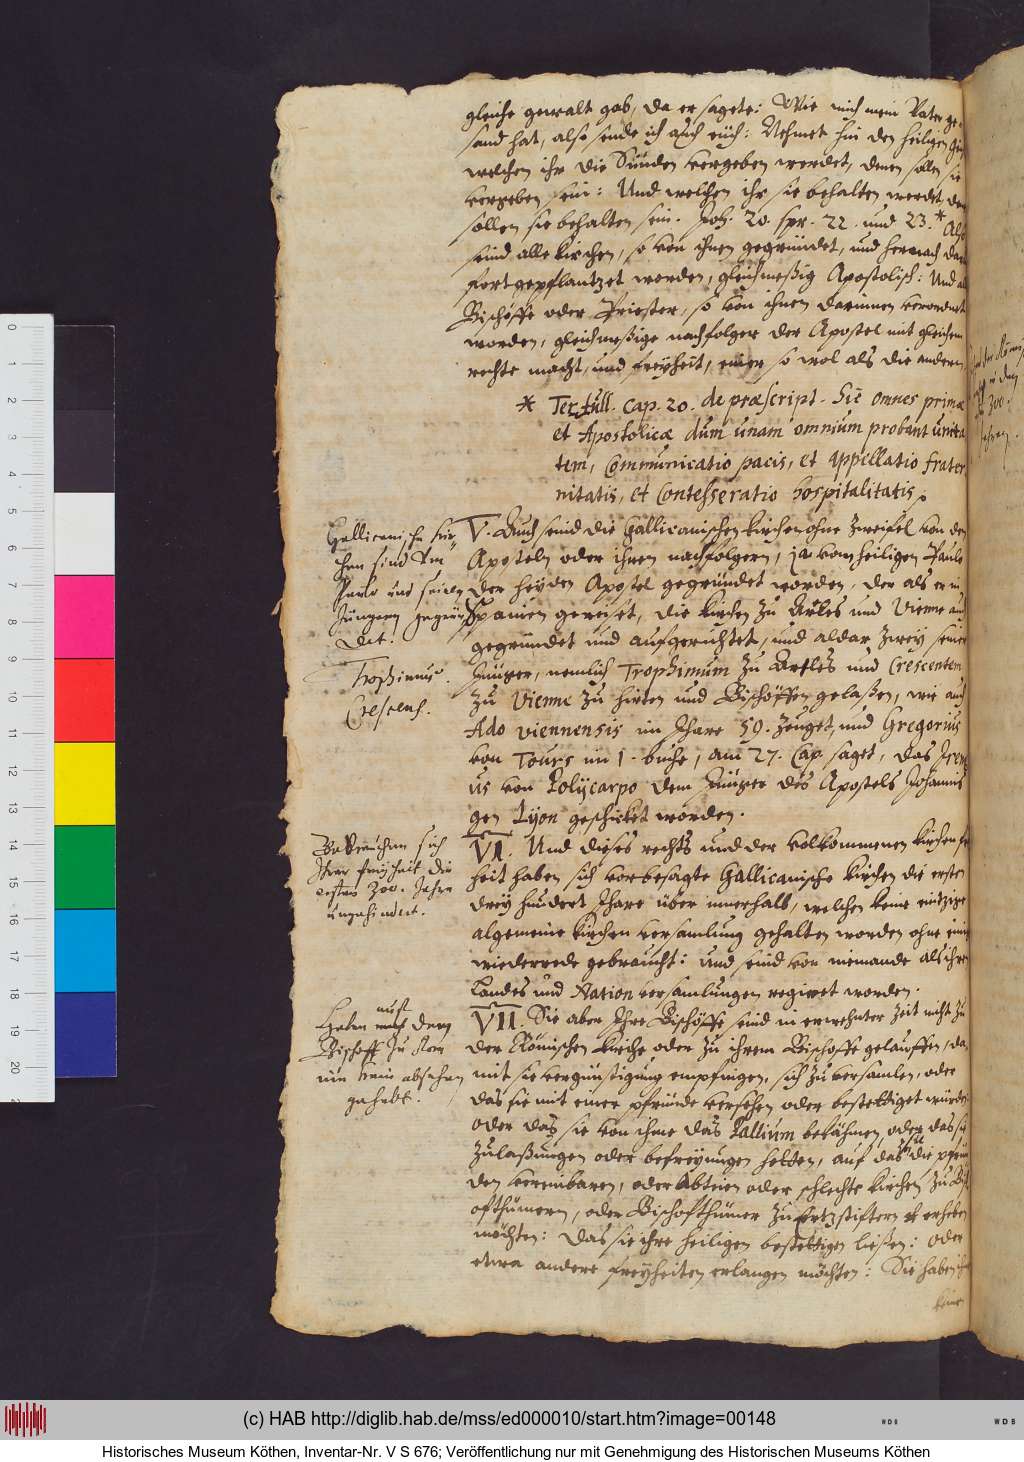 gleiche gewalt gab, da er sagete: Wie mich mein Vater ge-
sand hat, also sende ich auch euch: Nehmet hin den heiligen
welchen ihr die Sünden vergeben werdet, denen sollen sie
vergeben sein: Und welchen ihr sie behalten werdet, den
sollen sie behalten sein. Joh. 20. spr. 22. und 23.* Also
seind alle kirchen, so von ihnen gegründet, und hernach
fortgepflantzet worden, gleichmeßig Apostolisch: Und
Bischöffe oder Priester, so von ihnen darinnen verordnet
worden, gleichmeßige nachfolger der Apostel mit gleichem
rechte macht, und freyheit, einer so wol als die andern.
* Tertull. cap. 20. de præscript. Sic omnes primæ
et Apostolicæ dum unam omnium probant unita
tem, Communicatio pacis, et appellatio frater
nitatis, et Contesseratio hospitalitatis.
Gallicanische kir-
chen sind vm
Paulo und seinen
Jüngern gegrün
det.
Trophimus.
Crescens.
V. Auch seind die Gallicanischen kirchen ohne zweifel von den
Aposteln oder ihren nachfolgern, ja vom heiligen Paulo
der heyden Apostel gegründet worden, der als er in
Spanien gereiset, die kirchen zu Arles und Vienne
gegründet und aufgerichtet, und aldar zwey seiner
Jünger, nemlich Trophimum zu Arles und Crescentem
zu Vienne zu hirten und Bischöffen gelaßen, wie auch
Ado viennensis im Jhare 59. zeuget, und Gregorius
von Tours im 1. buche, am 27. Cap. saget, das Irene
us von Polycarpo dem Jünger des Apostels Johannis
gen Lyon geschicket worden.
Gebrauchen sich
Ihrer freyheit die
ersten 300. Jahre
ungehindert.
VI. Und dieses rechts und der volkommenen kirchen
heit haben sich vorbesagte Gallicanische kirchen die ersten
drey hundert Jhare über innerhalb, welchen keine eintzige
algemeine kirchen versamlung gehalten worden ohne einige
wiederrede gebraucht: und seind von niemande als ihres
Landes und Nation versamlungen regiret worden.
auff
Haben nach dem
Bischoff zu Rom
nie kein absehen
gehabt.
VII. Sie aber Ihre Bischöffe seind in erwehnter zeit nicht zu
der Römischen kirche oder zu ihrem Bischoffe gelauffen, da
mit sie vergünstigung empfingen, sich zu versamlen, oder
das sie mit einer pfründe versehen oder bestettiget würden:
oder das sie von ihme das Pallium bekähmen, oder das sie
zulaßungen oder befreyungen hetten, auf das sie die pfrün
den vereinbaren, oder Abteien oder schlechte kirchen zu Bisch
ofthümern, oder Bischofthümer zu Ertzstiftern erheben
möchten: das sie ihre heiligen bestettigen ließen: oder
etwa andere freyheiten erlangen möchten: Sie haben
keine
(c) HAB http://diglib.hab.de/mss/ed000010/start.htm?image=00148
Historisches Museum Köthen, Inventar-Nr. V S 676; Veröffentlichung nur mit Genehmigung des Historischen Museums Köthen